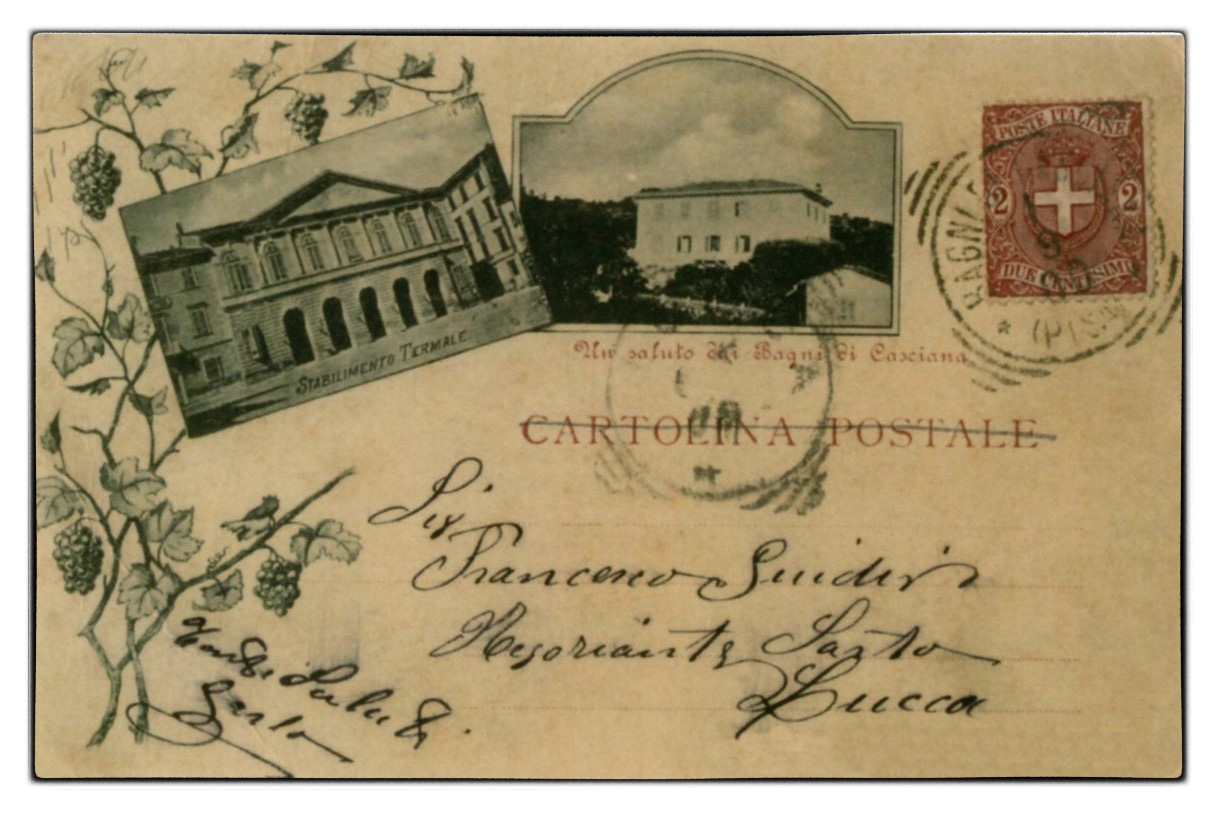 POSTE ITALIANE
2 2
DUE CENTESIMI
BAGNI
(PISA)
STABILIMENTO TERMALE.
Un saluto dai Bagni di Casciana
CARTOLINA POSTALE
Sig
Francesco Guidi
Negoziante Sarto
Lucca
Saluti